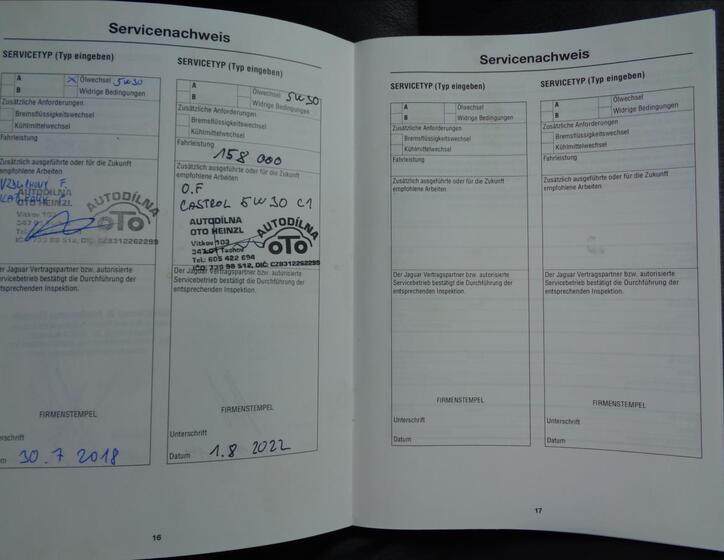 Servicenachweis
SERVICETYP (Typ eingeben)
A
X Ölwechsel 5W30
B
Widrige Bedingungen
Zusätzliche Anforderungen
Bremsflüssigkeitswechsel
Kühlmittelwechsel
Fahrleistung
Zusätzlich ausgeführte oder für die Zukunft
empfohlene Arbeiten
AUTODÍLNA
OTO HEINZL
AUTODÍLNA
OTO
Der Jaguar Vertragspartner bzw. autorisierte
Servicebetrieb bestätigt die Durchführung der
entsprechenden Inspektion.
FIRMENSTEMPEL
30. 7 2018
SERVICETYP (Typ eingeben)
A
Ölwechsel 5W30
B
Widrige Bedingungen
Zusätzliche Anforderungen
Bremsflüssigkeitswechsel
Kühlmittelwechsel
Fahrleistung
158 000
Zusätzlich ausgeführte oder für die Zukunft
empfohlene Arbeiten
O.F
CASTROL 5W30 C1
AUTODÍLNA
OTO HEINZL
Vítkov 103
347 01 Tachov
Tel.: 605 422 694
AUTODÍLNA
OTO
Der Jaguar Vertragspartner bzw. autorisierte
Servicebetrieb bestätigt die Durchführung der
entsprechenden Inspektion.
FIRMENSTEMPEL
Unterschrift
Datum 1.8 2022
16
Servicenachweis
SERVICETYP (Typ eingeben)
A
Ölwechsel
B
Widrige Bedingungen
Zusätzliche Anforderungen
Bremsflüssigkeitswechsel
Kühlmittelwechsel
Fahrleistung
Zusätzlich ausgeführte oder für die Zukunft
empfohlene Arbeiten
Der Jaguar Vertragspartner bzw. autorisierte
Servicebetrieb bestätigt die Durchführung der
entsprechenden Inspektion.
FIRMENSTEMPEL
Unterschrift
Datum
SERVICETYP (Typ eingeben)
A
Ölwechsel
B
Widrige Bedingungen
Zusätzliche Anforderungen
Bremsflüssigkeitswechsel
Kühlmittelwechsel
Fahrleistung
Zusätzlich ausgeführte oder für die Zukunft
empfohlene Arbeiten
Der Jaguar Vertragspartner bzw. autorisierte
Servicebetrieb bestätigt die Durchführung der
entsprechenden Inspektion.
FIRMENSTEMPEL
Unterschrift
Datum
17